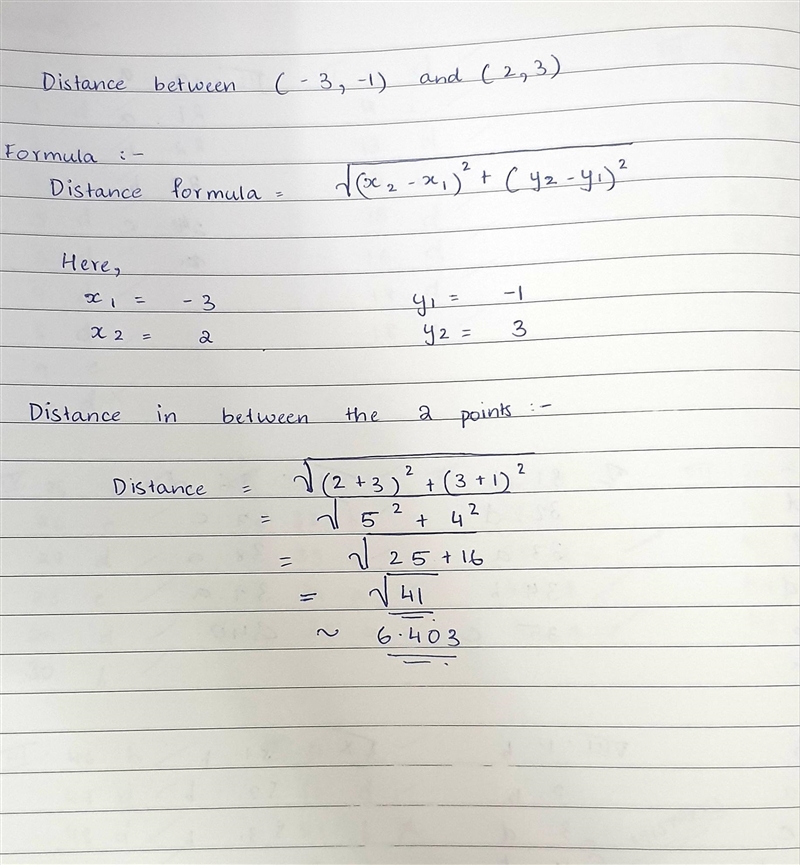 Distance between (-3, -1) and (2, 3)
Formula :-
Distance formula = √(x₂ - x₁)² + (y₂ - y₁)²
Here,
x₁ = -3 y₁ = -1
x₂ = 2 y₂ = 3
Distance in between the 2 points :-
Distance = √(2+3)² + (3+1)²
= √5² + 4²
= √25 + 16
= √41
~ 6.403